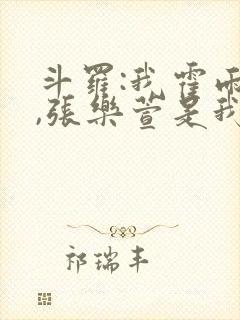 斗羅:我霍雨
,張樂萱是我
祁瑞丰